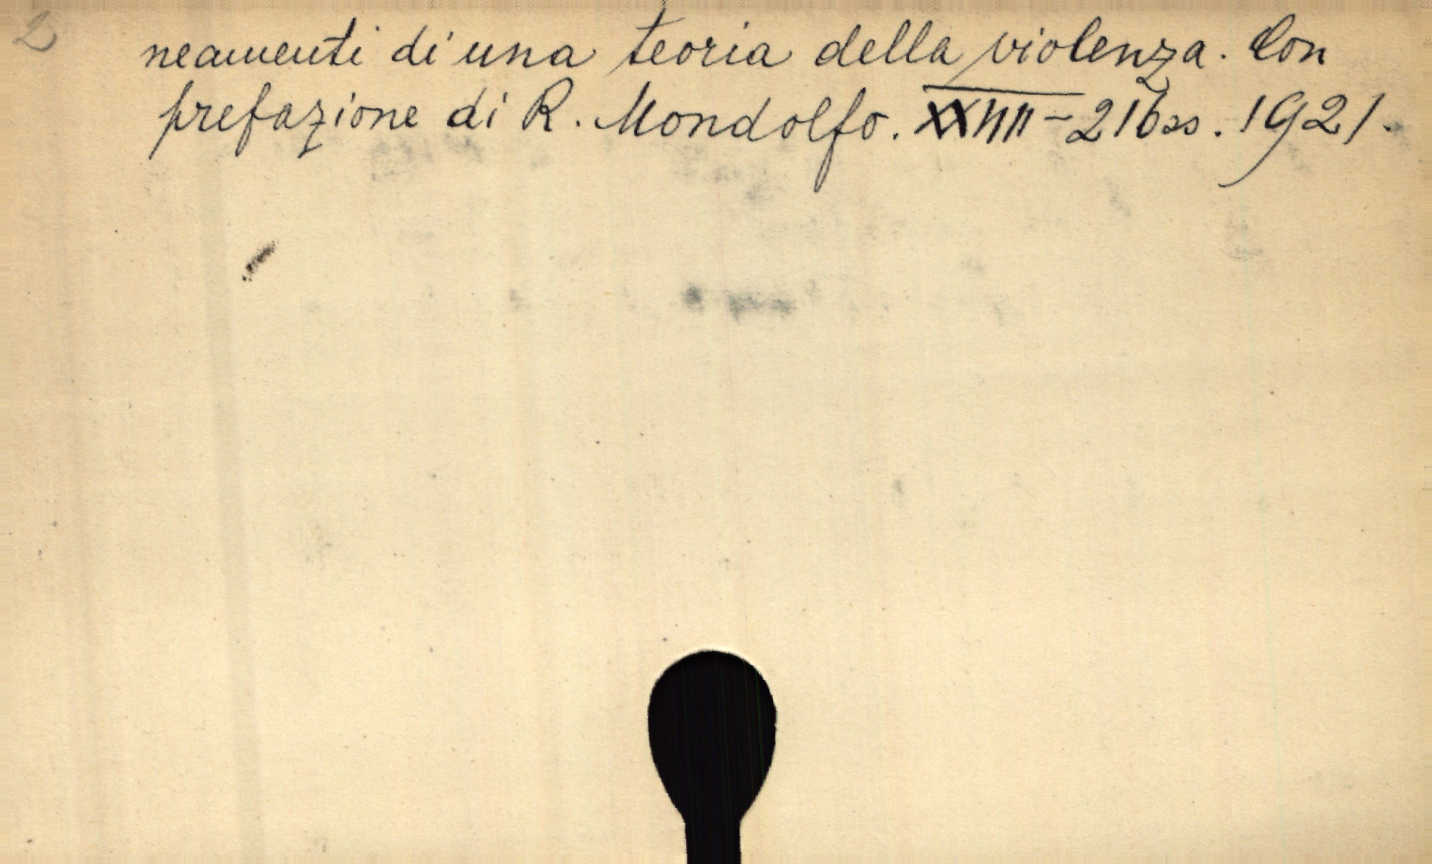 2
neamenti di una teoria della violenza. Con
prefazione di R. Mondolfo. XXIIII-216ss. 1921.